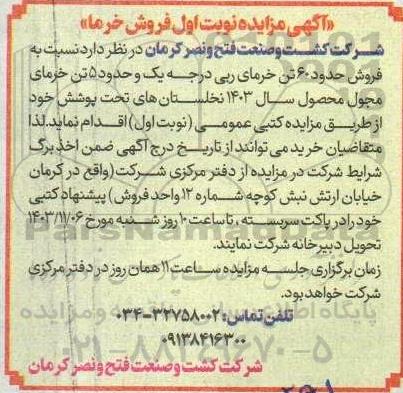 «آگهی مزایده نوبت اول فروش خرما»
شرکت کشت و صنعت فتح و نصر کرمان در نظر دارد نسبت به
فروش حدود ۶۰ تن خرمای ربی درجه یک و حدود ۵ تن خرمای
مجول محصول سال ۱۴۰۳ نخلستان های تحت پوشش خود
از طریق مزایده کتبی عمومی (نوبت اول) اقدام نماید.لذا
متقاضیان خرید می توانند از تاریخ درج آگهی ضمن اخذ برگ
شرایط شرکت در مزایده از دفتر مرکزی شرکت (واقع در کرمان
خیابان ارتش نبش کوچه شماره ۱۲ واحد فروش) پیشنهاد کتبی
خود را در پاکت سربسته ، تا ساعت ۱۰ روز شنبه مورخ ۱۴۰۳/۱۱/۰۶
تحویل دبیرخانه شرکت نمایند.
زمان برگزاری جلسه مزایده ساعت ۱۱ همان روز در دفتر مرکزی
شرکت خواهد بود.
تلفن تماس: ۳۲۷۵۸۰۰۲-۰۳۴
۰۹۱۳۸۴۱۶۳۰۰
شرکت کشت و صنعت فتح و نصر کرمان